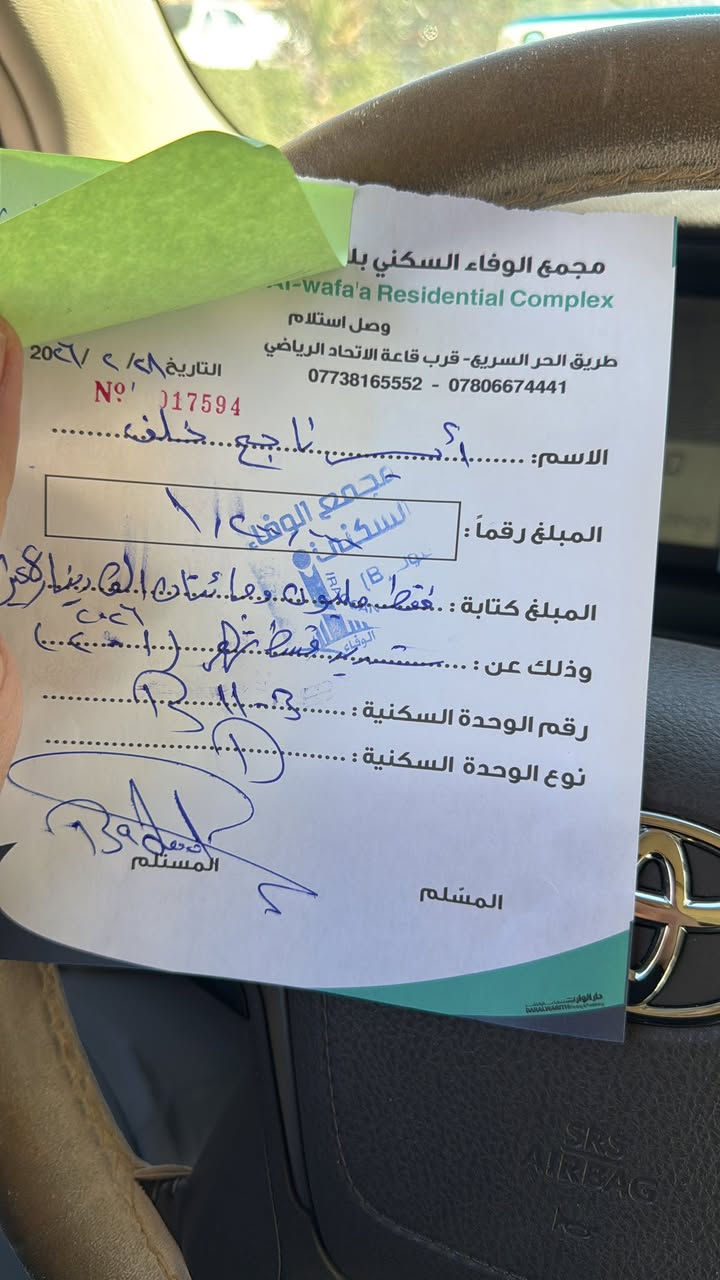 مجمع الوفاء السكني
Al-wafa'a Residential Complex
وصل استلام
طريق الحر السريع- قرب قاعة الاتحاد الرياضي
07738165552 - 07806674441
التاريخ ٢٨/ ٢ / 20٢٦
Nº 017594
الاسم: ناجح خلف
المبلغ رقماً:
مجمع الوفاء السكني
المبلغ كتابة: فقط مليون ومائتان الف دينار
وذلك عن: تسديد قسط شهر
٢٠٢٦
رقم الوحدة السكنية: B 11-3
نوع الوحدة السكنية: D
المستلم
المسّلم
دار الوارث
DARALWARITH
SRS
AIRBAG